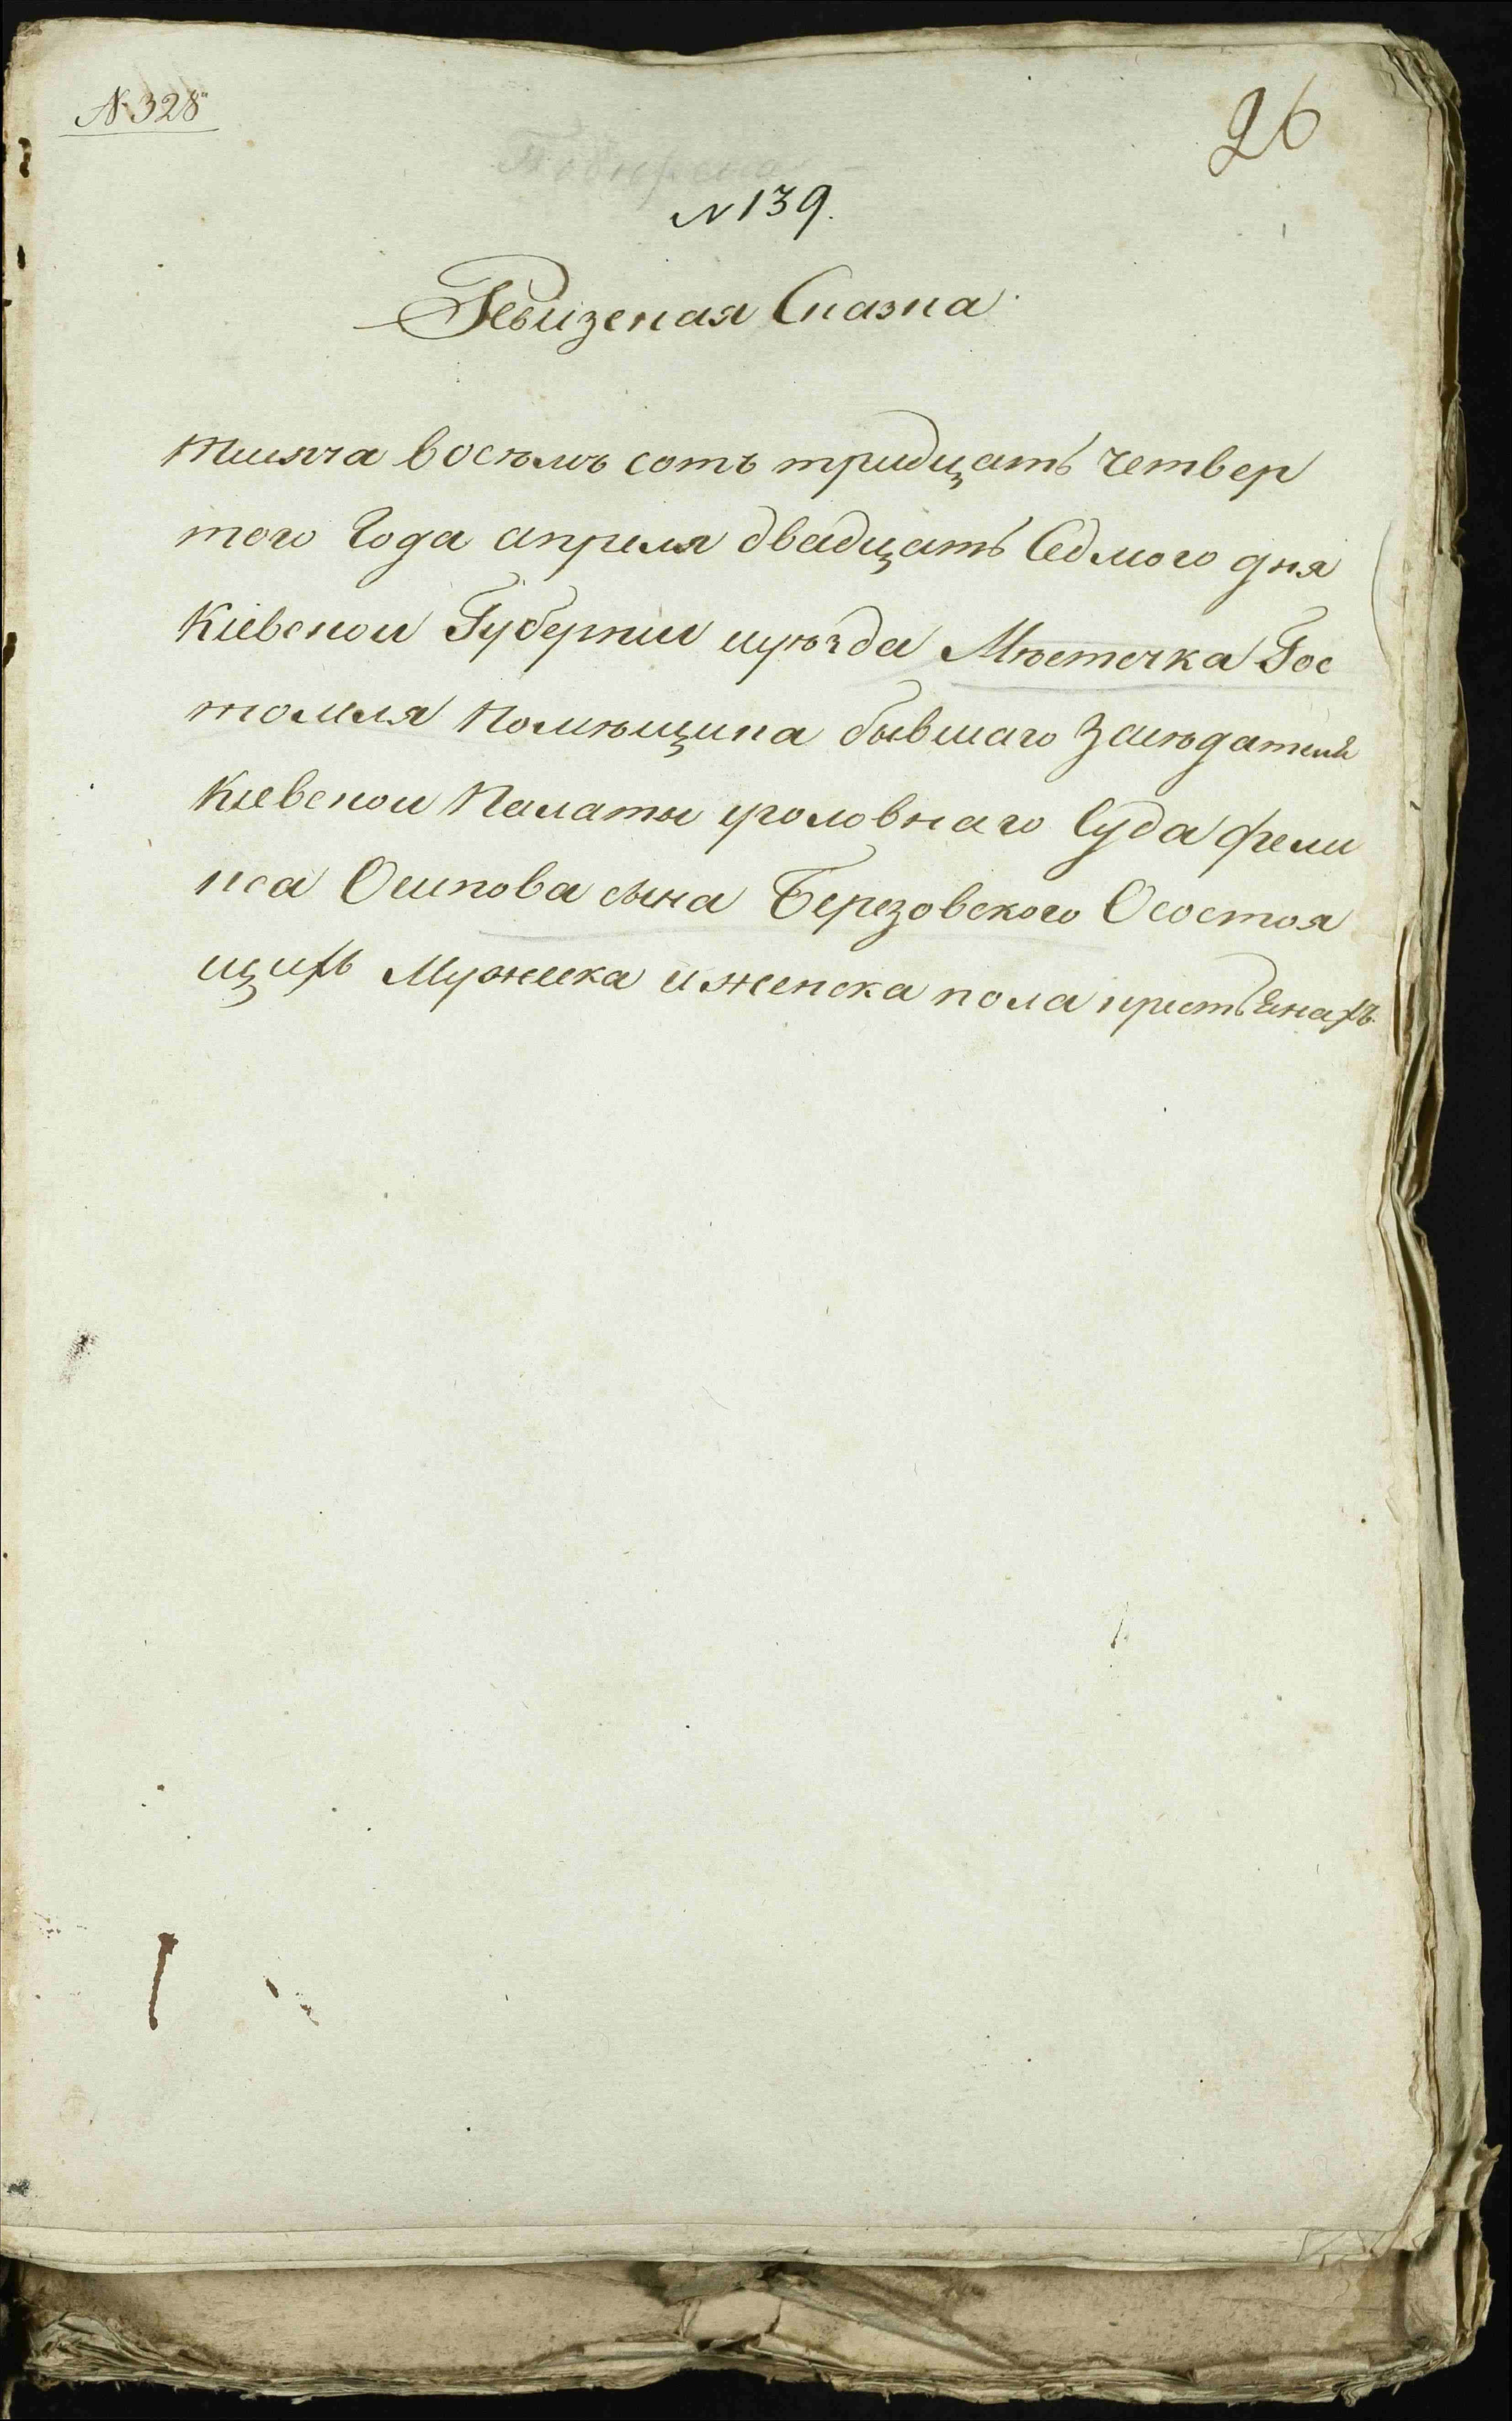 № 328
26
№ 139.
Ревизская Сказка
тысяча восемь сотъ тридцать четвер
того года апреля двадцать Седмого дня
Кіевской Губерніи иуѣзда Мѣстечка Гос
томля Помѣщика бывшаго Засѣдателя
Кіевской Палаты уголовнаго Суда Фели
кса Осипова сына Березовского Осостоя
щихъ Мужеска и женска пола крестьянахъ.